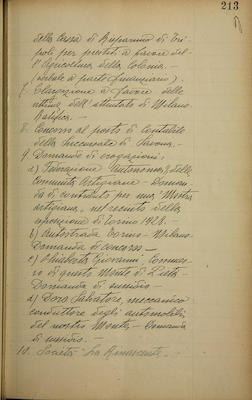 213
della Cassa di Risparmio di Tri-
poli per prestiti a favore del-
l'Agricoltura della Colonia. -
(vedasi a parte finanziario).
7. Elargizione a favore delle
vittime dell'attentato di Milano
Ratifica. -
8. Concorso al posto di Capitale
della Succursale di Savona.
9. Domande di erogazioni:
a) Federazione Autonoma delle
Comunità Artigiane - Doman-
da di contributo per una Mostra
Artigiana, nel recinto della
esposizione di Torino 1928. -
b) Autostrada Torino - Milano
Domanda di concorso -
c) Giovanni,
di questo Monte di Pietà -
Domanda di sussidio -
d) Doro Salvatore, meccanico
conduttore degli automobili
del nostro Monte - Domanda
di sussidio. -
10. Società La Rinascente. -